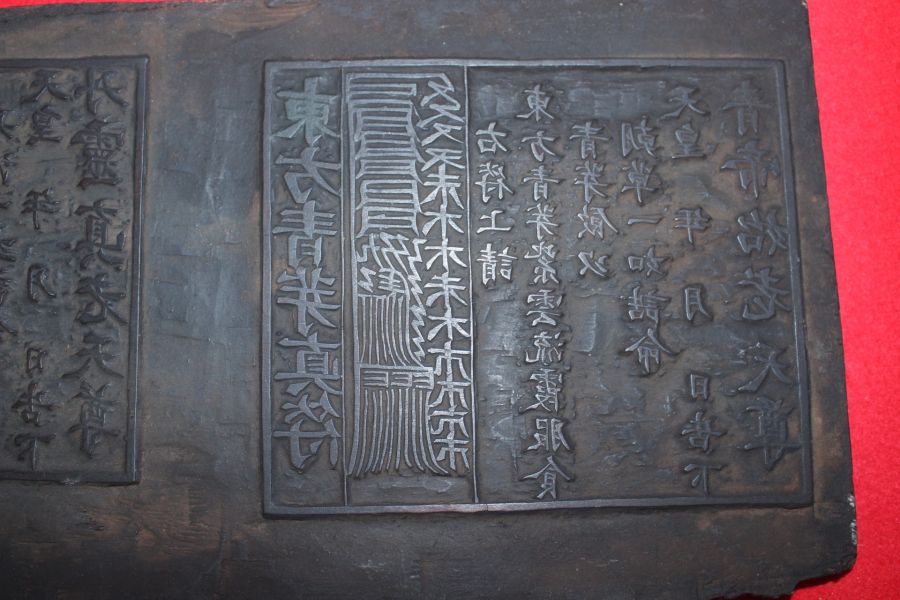 天皇 年 月 日告下
丹靈真老天尊
東方青芽真符
右符上請
東方青芽紫雲流霞服食
青芽飲以
朝華一如誥命
天皇 年 月 日告下
青帝始老天尊